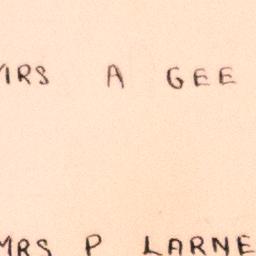 MRS A GEE
MRS P LARNE